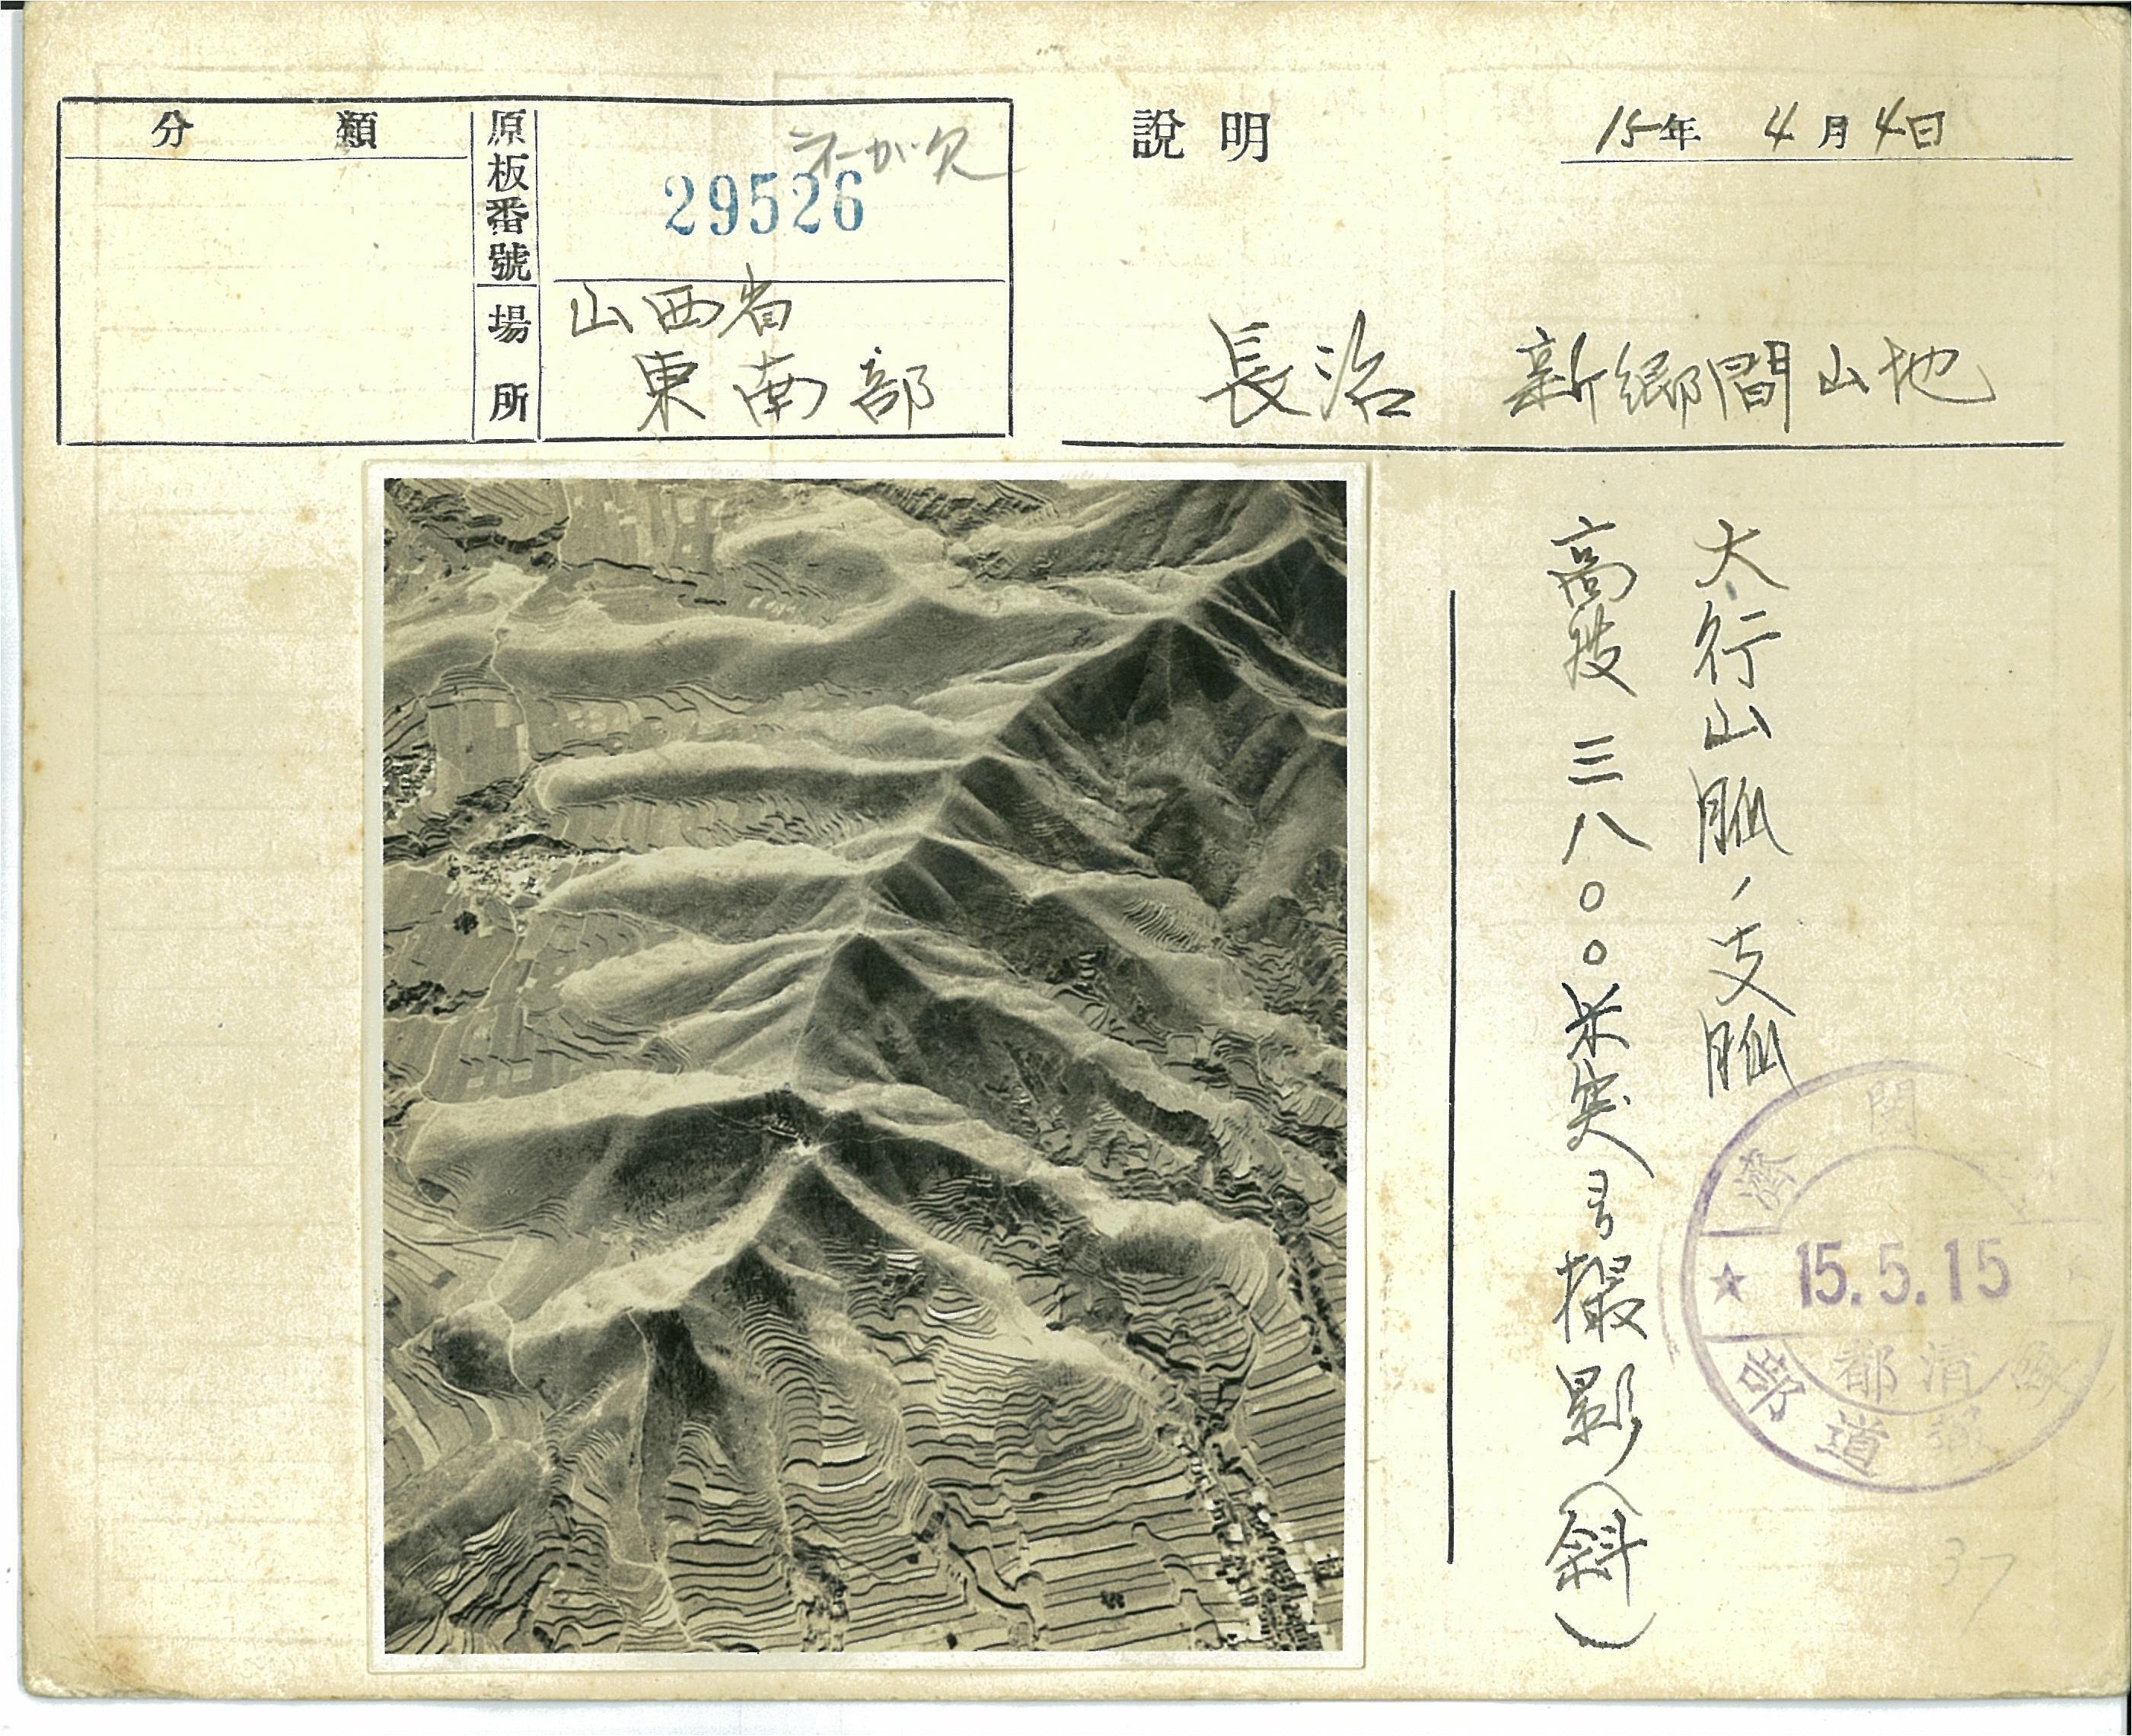 分類
原板番號
ネーガ欠
29526
場所
山西省
東南部
說明
15年 4月4日
長治 新郷間山地
大行山脈ノ支脈
高度三八〇〇米突ヨリ撮影(斜)
濟 閲
★ 15.5.15
部 情
道 報
37